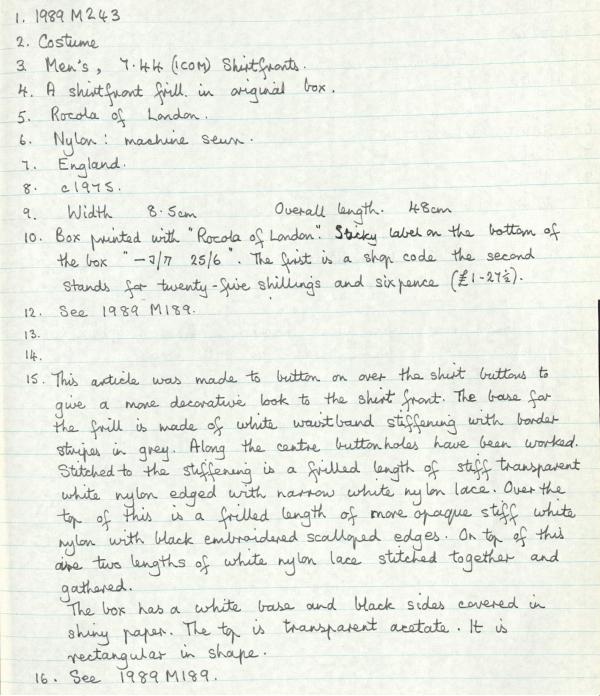 1. 1989 M243
2. Costume
3. Men's, 7.44 (ICOM) Shirtfronts.
4. A shirtfront frill in original box.
5. Rocola of London.
6. Nylon: machine sewn.
7. England.
8. c1975.
9. Width 8.5cm Overall length. 48cm
10. Box printed with "Rocola of London". Sticky label on the bottom of
the box "-J/π 25/6". The first is a shop code the second
stands for twenty-five shillings and sixpence (£1-27½).
12. See 1989 M189.
13.
14.
15. This article was made to button on over the shirt buttons to
give a more decorative look to the shirt front. The base for
the frill is made of white waistband stiffening with border
stripes in grey. Along the centre buttonholes have been worked.
Stitched to the stiffening is a frilled length of stiff transparent
white nylon edged with narrow white nylon lace. Over the
top of this is a frilled length of more opaque stiff white
nylon with black embroidered scalloped edges. On top of this
are two lengths of white nylon lace stitched together and
gathered.
The box has a white base and black sides covered in
shiny paper. The top is transparent acetate. It is
rectangular in shape.
16. See 1989 M189.